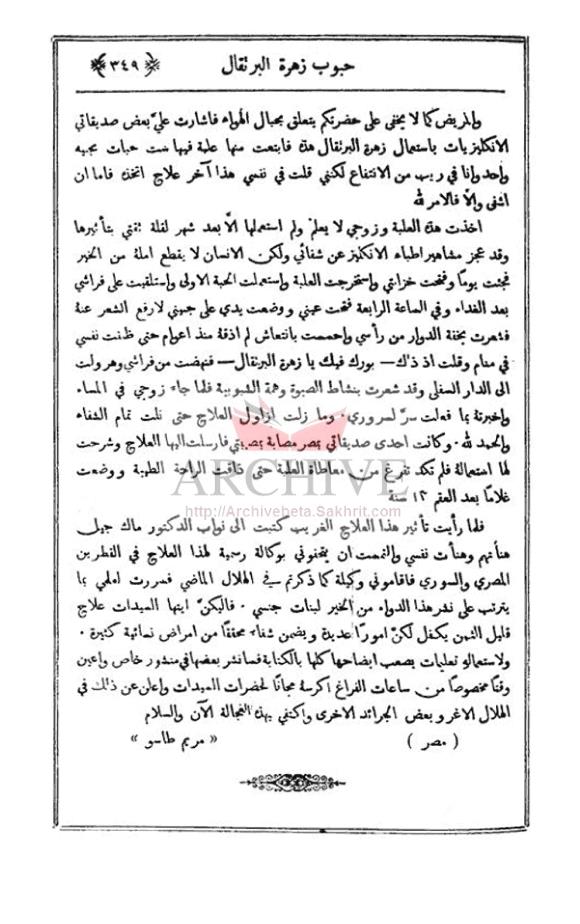 حبوب زهرة البرتقال
﴿٣٤٩﴾
والمريض كما لا يخفى على حضرتكم يتعلق بحبال الهواء فاشارت عليّ بعض صديقاتي
الانكليزيات باستعمال زهرة البرتقال هذه فابتعت منها علبة فيها ست حبات بجنيه
واحد وانا في ريب من الانتفاع لكنني قلت في نفسي هذا آخر علاج اتخذه فاما ان
اشفى والاّ فالامر لله
اخذت هذه العلبة وزوجي لا يعلم ولم استعملها الاّ بعد شهر لقلة ثقتي بتأثيرها
وقد عجز مشاهير اطباء الانكليز عن شفائي ولكن الانسان لا يقطع املهُ من الخير
فجئت يوماً وفتحت خزانتي واستخرجت العلبة واستعملت الحبة الاولى واستلقيت على فراشي
بعد الغداء وفي الساعة الرابعة فتحت عيني ووضعت يدي على جبيني لارفع الشعر عنهُ
فشعرت بخفة الدوار من رأسي واحسست بانتعاش لم اذقهُ منذ اعوام حتى ظننت نفسي
في منام وقلت اذ ذك — بورك فيك يا زهرة البرتقال — فنهضت من فراشي وهرولت
الى الدار السفلى وقد شعرت بنشاط الصبوة وهمة الشبوبية فلما جاء زوجي في المساء
واخبرتهُ بما فعلت سرّ لسروري ٠ وما زلت ازاول العلاج حتى نلت تمام الشفاء
والحمد لله ٠ وكانت احدى صديقاتي بمصر مصابة بمصيبتي فارسلت اليها العلاج وشرحت
لها استعمالهُ فلم تكد تفرغ من معاطاة العلبة حتى ذاقت الراحة الطيبة ووضعت
غلاماً بعد العقم ١٢ سنة
ARCHIVE
http://Archivebeta.Sakhrit.com
فلما رأيت تأثير هذا العلاج الغريب كتبت الى نواب الدكتور ماك جيل
هنأتهم وهنأت نفسي والتمست ان يتحفوني بوكالة رسمية لهذا العلاج في القطرين
المصري والسوري فاقاموني وكيلة كما ذكرتم في الهلال الماضي فسررت لعلمي بما
يترتب على نشر هذا الدواء من الخير لبنات جنسي ٠ فاليكنّ ايتها السيدات علاج
قليل الثمن يكفل لكنّ اموراً عديدة ويضمن شفاء محققاً من امراض نسائية كثيرة ٠
ولاستعمالهِ تعليمات يصعب ايضاحها كلها بالكتابة فسانشر بعضها في منشور خاص واعين
وقتاً مخصوصاً من ساعات الفراغ اكرسهُ مجاناً لحضرات السيدات واعلن عن ذلك في
الهلال الاغر وبعض الجرائد الاخرى واكتفي بهذه العجالة الآن والسلام
( مصر ) « مريم »